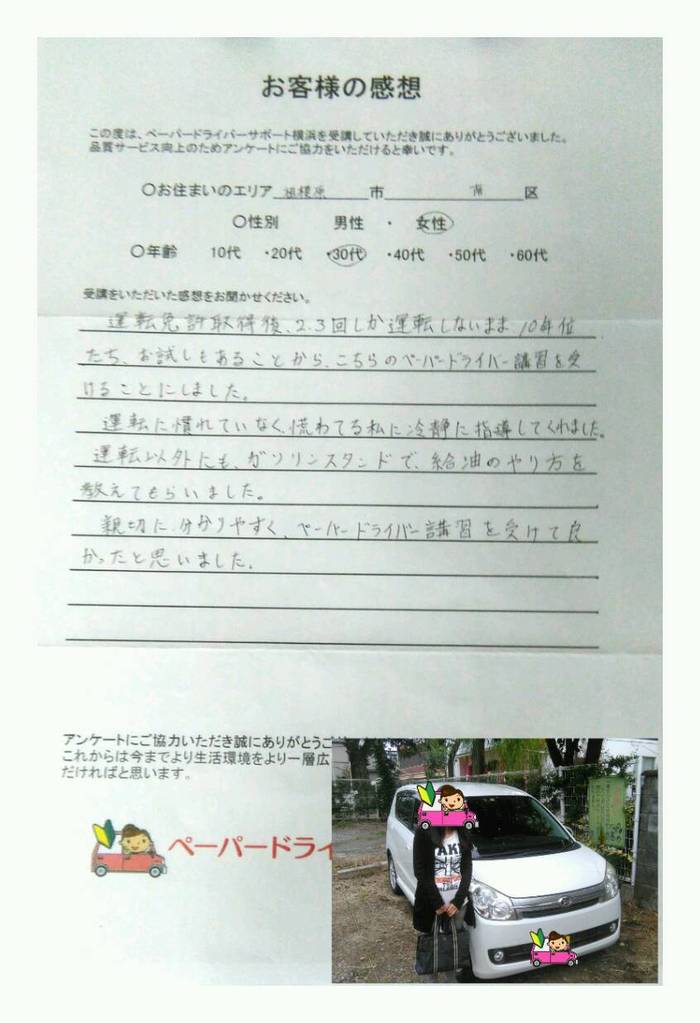 お客様の感想
この度は、ペーパードライバーサポート横浜を受講していただき誠にありがとうございました。
品質サービス向上のためアンケートにご協力をいただけると幸いです。
〇お住まいのエリア 相模原 市 南 区
〇性別 男性 ・ 女性
〇年齢 10代 ・20代 ・30代 ・40代 ・50代 ・60代
受講をいただいた感想をお聞かせください。
運転免許取得後、2.3回しか運転しないまま、10年位
たち、お試しもあることから、こちらのペーパードライバー講習を受
けることにしました。
運転に慣れていなく、慌わてる私に冷静に指導してくれました。
運転以外にも、ガソリンスタンドで、給油のやり方を
教えてもらいました。
親切に分かりやすく、ペーパードライバー講習を受けて良
かったと思いました。
アンケートにご協力いただき誠にありがとうご
これからは今までより生活環境をより一層広
だければと思います。
ペーパードライ